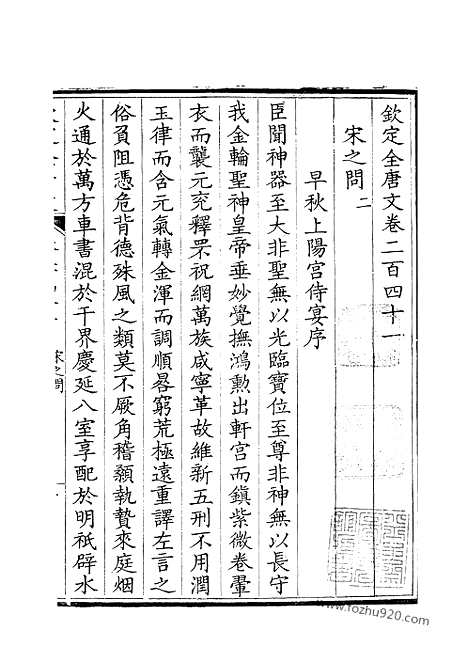 欽定全唐文卷二百四十一
宋之問二
早秋上陽宮侍宴序
臣聞神器至大非聖無以光臨寶位至尊非神無以長守
我金輪聖神皇帝垂妙覺撫鴻勳出軒宮而鎮紫微卷翬
衣而襲元兖釋罘祝網萬族咸寧革故維新五刑不用潤
玉律而含元氣轉金渾而調順晷窮荒極遠重譯左言之
俗負阻憑危背德殊風之類莫不厥角稽顙執贄來庭烟
火通於萬方車書混於千界慶延八室享配於明祇辟水
宋之問
一
www.fozhu920.com